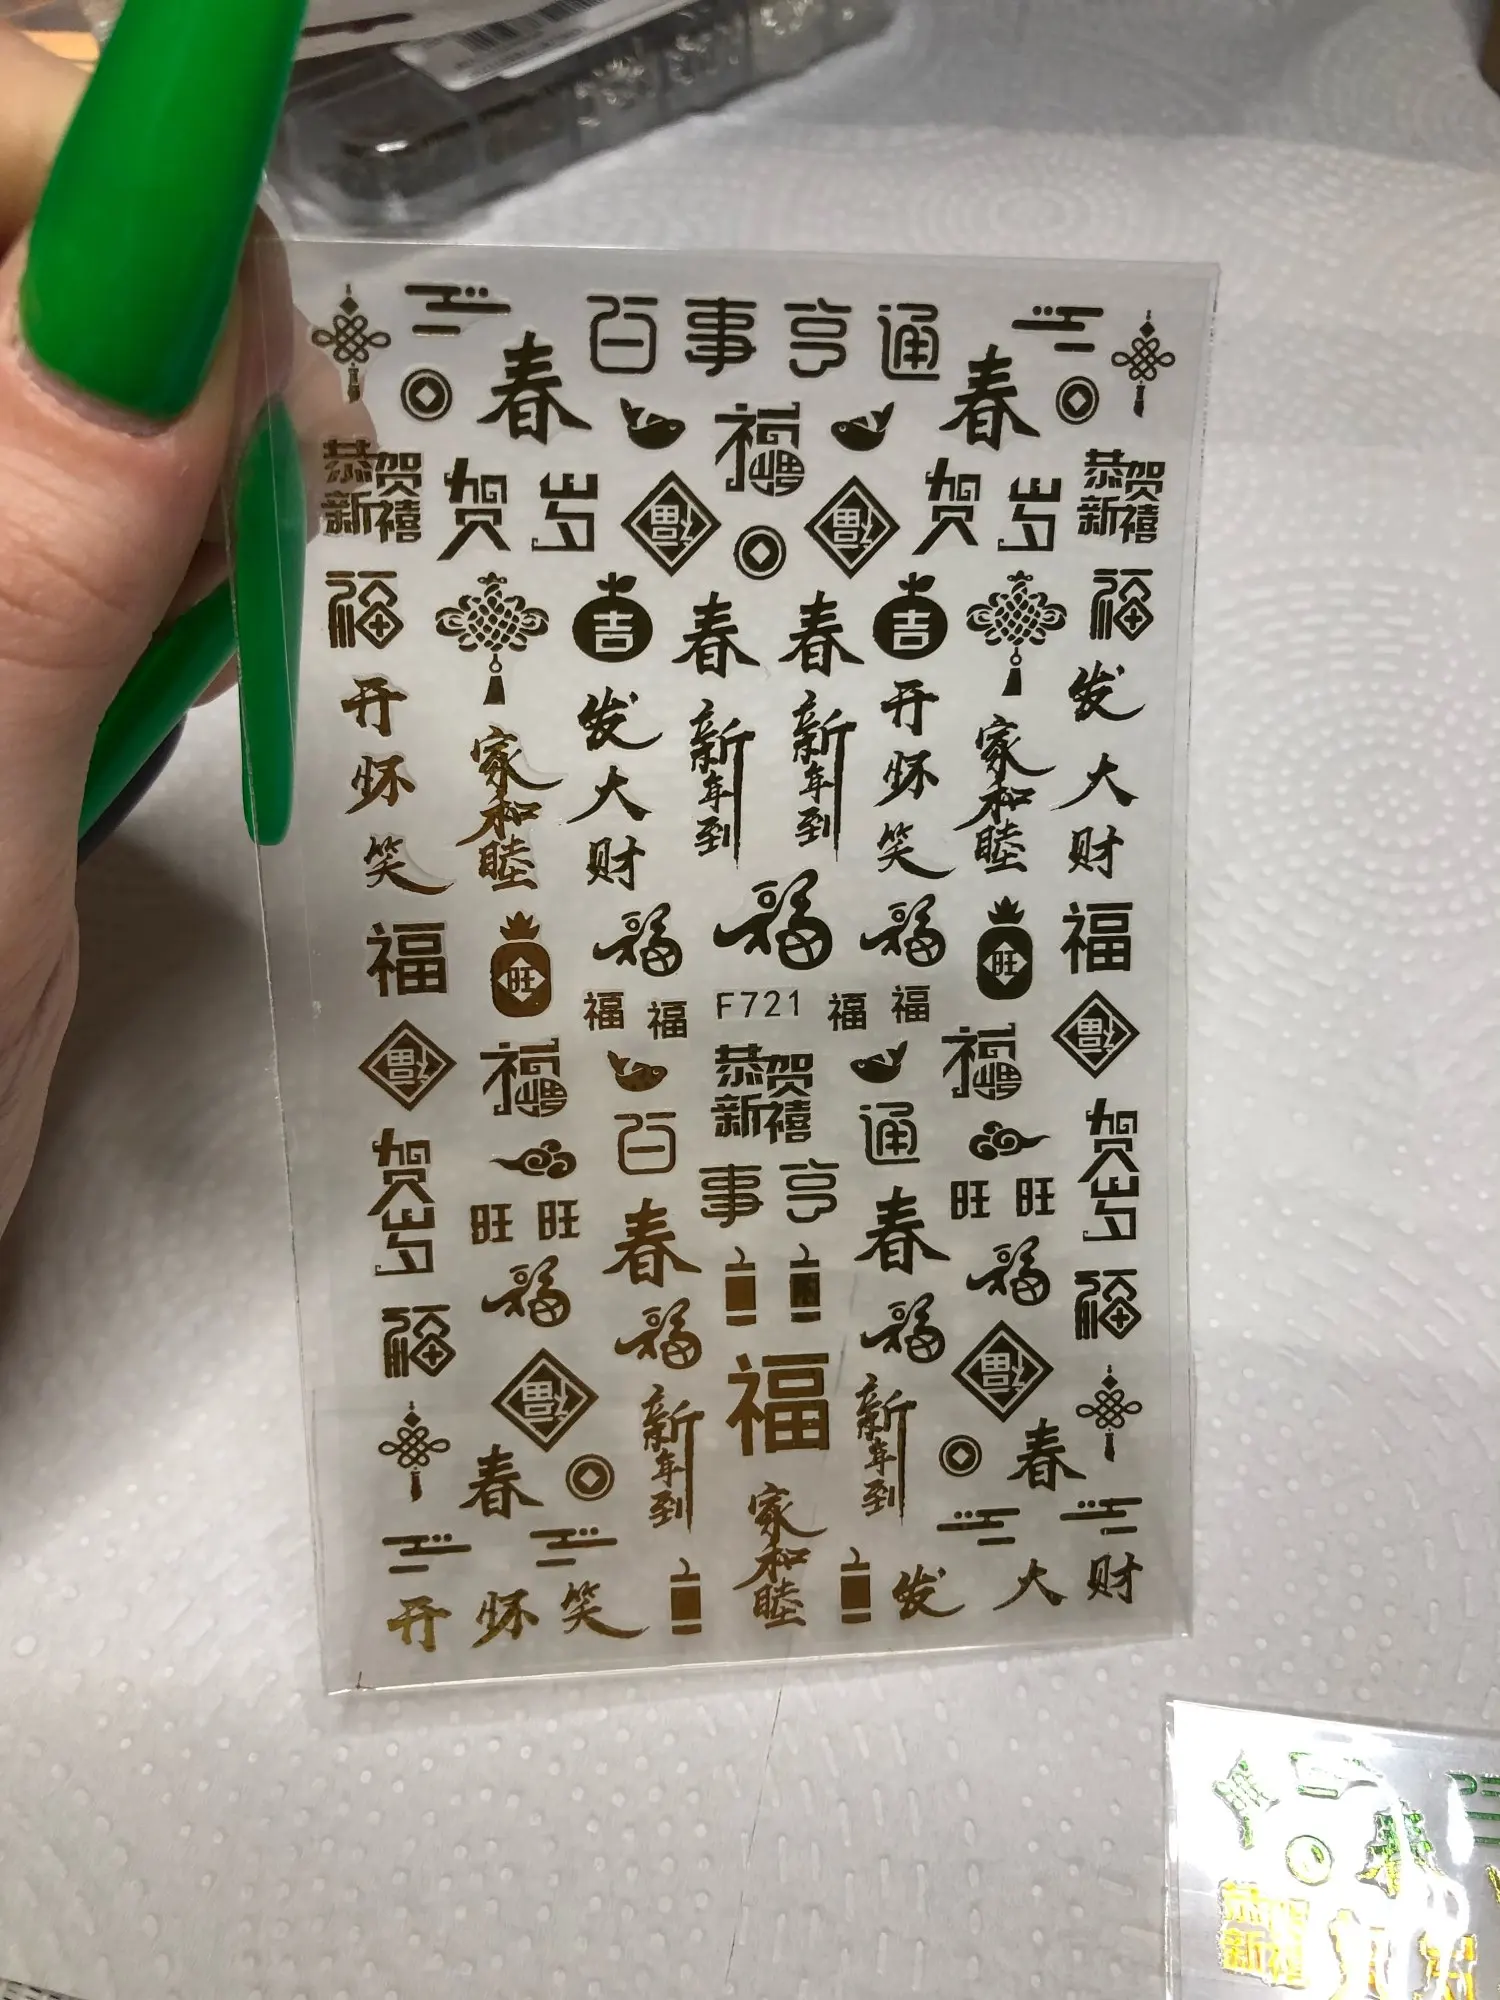 百事亨通
春 春
福
恭贺新禧 贺岁 福 福 贺岁 恭贺新禧
福 吉 春 春 吉 福
开怀笑 家和睦 发大财 新年到 新年到 开怀笑 家和睦 发大财
福 旺 福 福 福 旺 福
福 福 F721 福 福
福 福 恭贺新禧 福 福
百 通
贺岁 旺 旺 事 亨 旺 旺 贺岁
春 春
福 福 福 福
福 福
福 新年到 福 新年到 福
春 春
家和睦
开怀笑 发大财
恭贺新禧